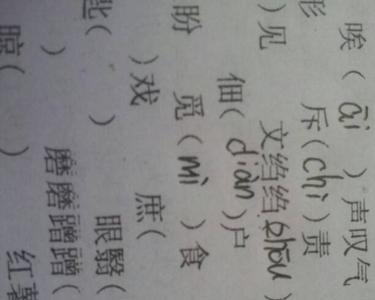 唉(āi)声叹气
形 斥(chì)责
)见 文绉绉(zhōu)
佃(diàn)户
盼 觅(mì)食
)戏 庶(
匙( ) 眼翳(
) 磨磨蹭蹭(
( ) 红薯